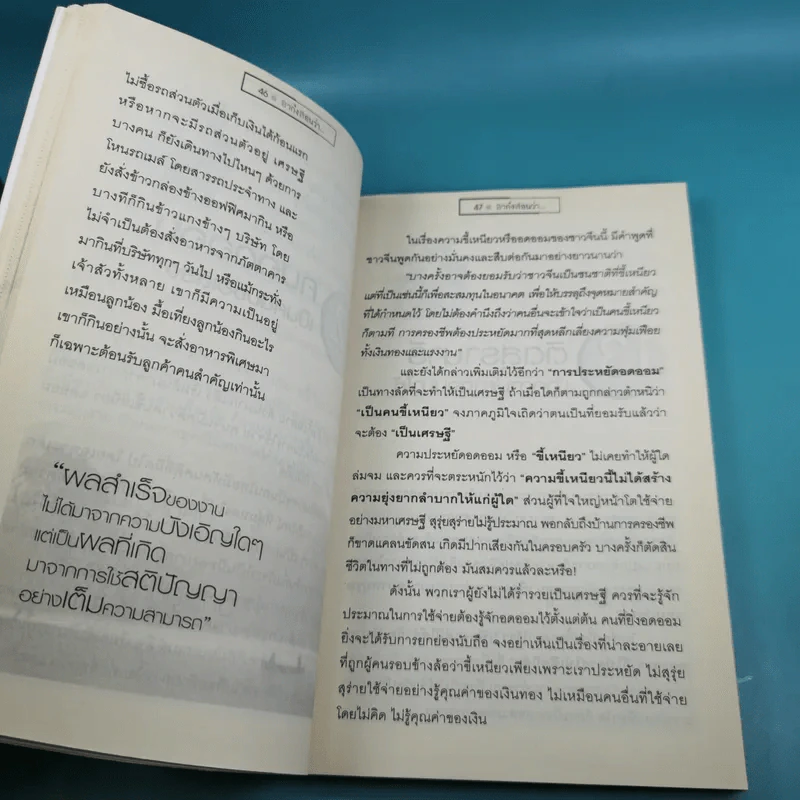 46 อากังสอนว่า...
ไม่ซื้อรถส่วนตัวเมื่อเก็บเงินได้ก้อนแรก
หรือหากจะมีรถส่วนตัวอยู่ เศรษฐี
บางคน ก็ยังเดินทางไปไหนๆ ด้วยการ
โหนรถเมล์ โดยสารรถประจำทาง และ
ยังสั่งข้าวกล่องข้างออฟฟิศมากิน หรือ
บางทีก็กินข้าวแกงข้างๆ บริษัท โดย
ไม่จำเป็นต้องสั่งอาหารจากภัตตาคาร
มากินที่บริษัททุกๆ วันไป หรือแม้กระทั่ง
เจ้าสัวทั้งหลาย เขาก็มีความเป็นอยู่
เหมือนลูกน้อง มื้อเที่ยงลูกน้องกินอะไร
เขาก็กินอย่างนั้น จะสั่งอาหารพิเศษมา
ก็เฉพาะต้อนรับลูกค้าคนสำคัญเท่านั้น
“ผลสำเร็จของงาน
ไม่ได้มาจากความบังเอิญใดๆ
แต่เป็นผลที่เกิด
มาจากการใช้สติปัญญา
อย่างเต็มความสามารถ”
47 อากังสอนว่า...
ในเรื่องความขี้เหนียวหรืออดออมของชาวจีนนี้ มีคำพูดที่
ชาวจีนพูดกันอย่างมั่นคงและสืบต่อกันมาอย่างยาวนานว่า
“บางครั้งอาจต้องยอมรับว่าชาวจีนเป็นชนชาติที่ขี้เหนียว
แต่ที่เป็นเช่นนี้ก็เพื่อสะสมทุนในอนาคต เพื่อให้บรรลุถึงจุดหมายสำคัญ
ที่ได้กำหนดไว้ โดยไม่ต้องคำนึงถึงว่าคนอื่นจะเข้าใจว่าเป็นคนขี้เหนียว
ก็ตามที การครองชีพต้องประหยัดมากที่สุดหลีกเลี่ยงความฟุ่มเฟือย
ทั้งเงินทองและแรงงาน”
และยังได้กล่าวเพิ่มเติมไว้อีกว่า “การประหยัดอดออม”
เป็นทางลัดที่จะทำให้เป็นเศรษฐี ถ้าเมื่อใดก็ตามถูกกล่าวตำหนิว่า
“เป็นคนขี้เหนียว” จงภาคภูมิใจเถิดว่าตนเป็นที่ยอมรับแล้วว่า
จะต้อง “เป็นเศรษฐี”
ความประหยัดอดออม หรือ “ขี้เหนียว” ไม่เคยทำให้ผู้ใด
ล่มจม และควรที่จะตระหนักไว้ว่า “ความขี้เหนียวนี้ไม่ได้สร้าง
ความยุ่งยากลำบากให้แก่ผู้ใด” ส่วนผู้ที่ใจใหญ่หน้าโตใช้จ่าย
อย่างมหาเศรษฐี สุรุ่ยสุร่ายไม่รู้ประมาณ พอกลับถึงบ้านการครองชีพ
ก็ขาดแคลนขัดสน เกิดมีปากเสียงกันในครอบครัว บางครั้งก็ตัดสิน
ชีวิตในทางที่ไม่ถูกต้อง มันสมควรแล้วละหรือ!
ดังนั้น พวกเราผู้ยังไม่ได้ร่ำรวยเป็นเศรษฐี ควรที่จะรู้จัก
ประมาณในการใช้จ่ายต้องรู้จักอดออมไว้ตั้งแต่ต้น คนที่ยิ่งอดออม
ยิ่งจะได้รับการยกย่องนับถือ จงอย่าเห็นเป็นเรื่องที่น่าละอายเลย
ที่ถูกผู้คนรอบข้างล้อว่าขี้เหนียวเพียงเพราะเราประหยัด ไม่สุรุ่ย
สุร่ายใช้จ่ายอย่างรู้คุณค่าของเงินทอง ไม่เหมือนคนอื่นที่ใช้จ่าย
โดยไม่คิด ไม่รู้คุณค่าของเงิน